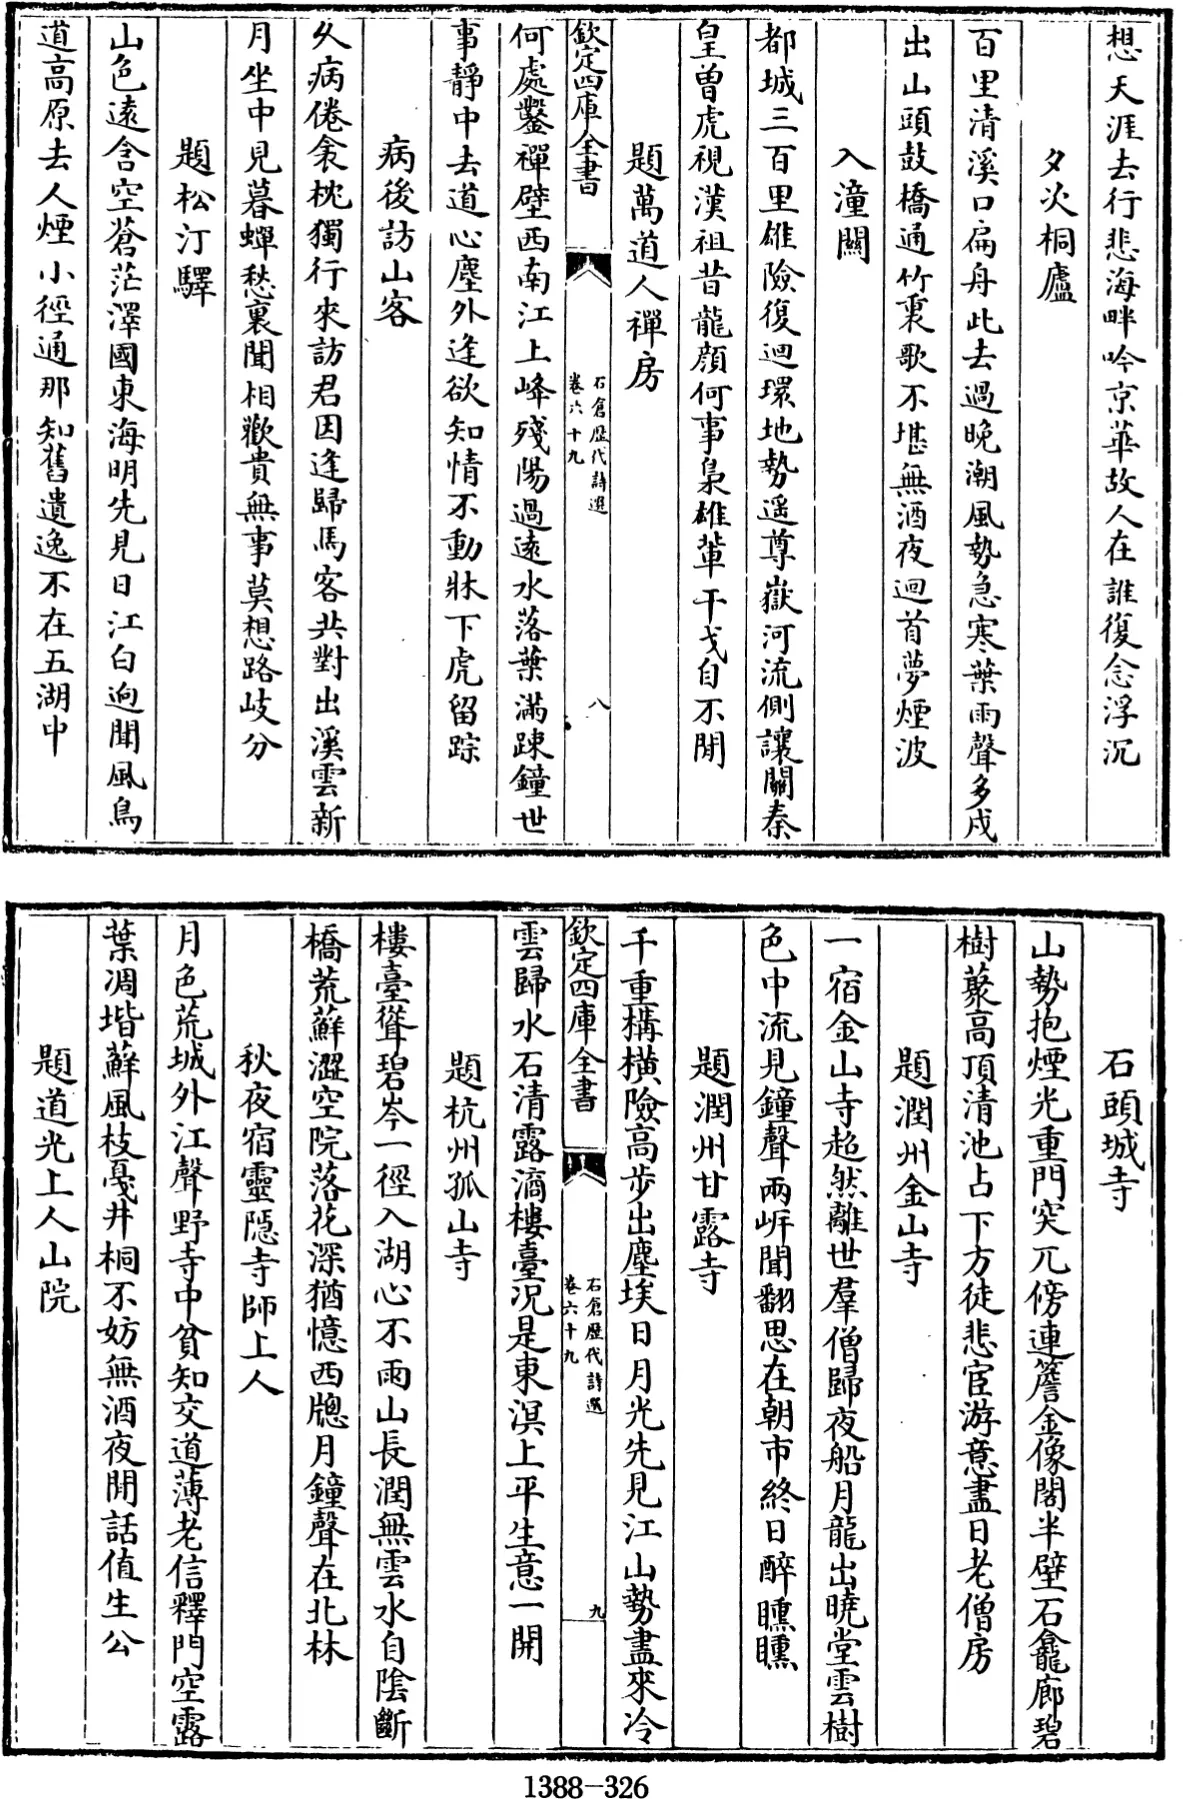 想天涯去行悲海畔吟京華故人在誰復念浮沉
夕次桐廬
百里清溪口扁舟此去過晚潮風勢急寒葉雨聲多戍
出山頭鼓橋通竹裏歌不堪無酒夜迴首夢煙波
入潼關
都城三百里雄險復迴環地勢遥尊嶽河流側讓關秦
皇曽虎視漢祖昔龍顔何事梟雄輩干戈自不閒
題萬道人禪房
欽定四庫全書
石倉歷代詩選
卷六十九
八
何處鑿禪壁西南江上峰殘陽過遠水落葉滿踈鐘世
事靜中去道心塵外逢欲知情不動牀下虎留踪
病後訪山客
久病倦衾枕獨行來訪君因逢歸馬客共對出溪雲新
月坐中見暮蟬愁裏聞相歡貴無事莫想路岐分
題松汀驛
山色遠含空蒼茫澤國東海明先見日江白迥聞風鳥
道高原去人煙小徑通那知舊遺逸不在五湖中
石頭城寺
山勢抱煙光重門突兀傍連簷金像閣半壁石龕廊碧
樹叢高頂清池占下方徒悲宦游意盡日老僧房
題潤州金山寺
一宿金山寺超然離世羣僧歸夜船月龍出曉堂雲樹
色中流見鐘聲兩岸聞翻思在朝市終日醉醺醺
題潤州甘露寺
千重構橫險高步出塵埃日月光先見江山勢盡來冷
欽定四庫全書
石倉歷代詩選
卷六十九
九
雲歸水石清露滴樓臺况是東溟上平生意一開
題杭州孤山寺
樓臺聳碧岑一徑入湖心不雨山長潤無雲水自陰斷
橋荒蘚澀空院落花深猶憶西牕月鐘聲在北林
秋夜宿靈隱寺師上人
月色荒城外江聲野寺中貧知交道薄老信釋門空露
葉凋堦蘚風枝戞井桐不妨無酒夜閒話值生公
題道光上人山院
1388-326